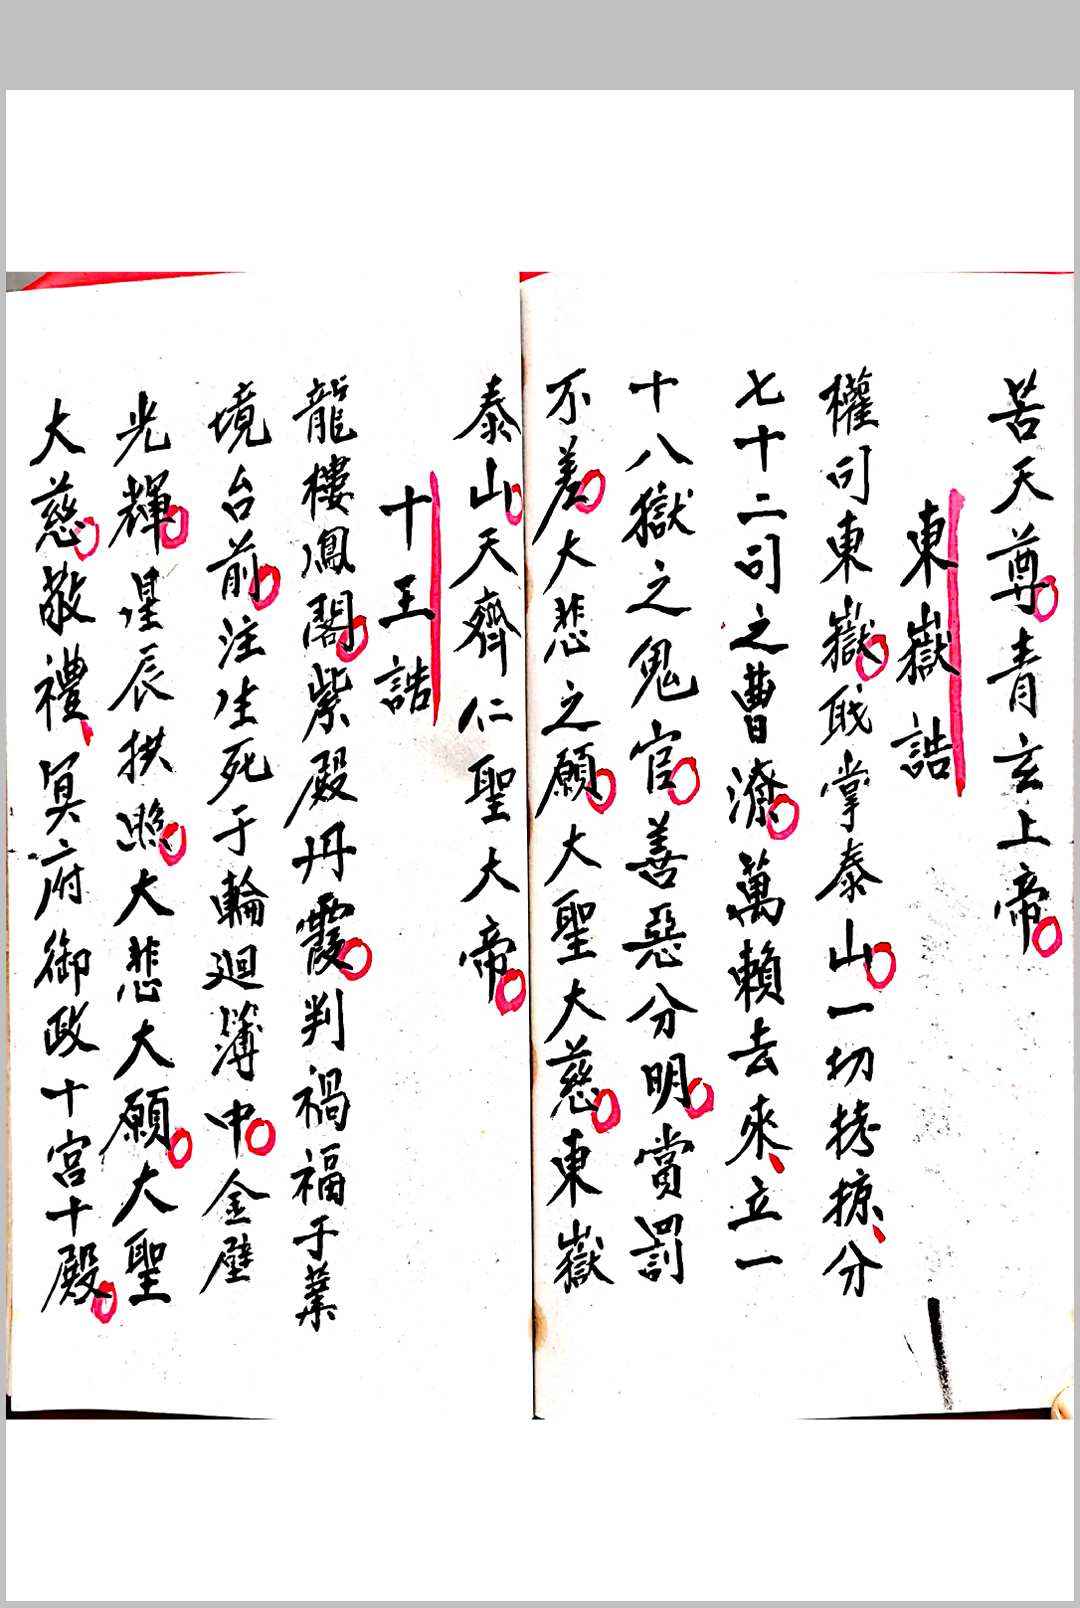 苦天尊青玄上帝
東嶽誥
權司東嶽戝掌泰山一切拷掠分
七十二司之曹濟萬賴去來立一
十八獄之鬼官善惡分明當罰
不差大悲之願大聖大慈東嶽
泰山天齊仁聖大帝
十王誥
龍樓鳳閣紫殿丹霞判禍福于業
境台前注生死于輪迴簿中金壁
光輝星辰拱照大悲大願大聖
大慈敬禮冥府御政十宮十殿